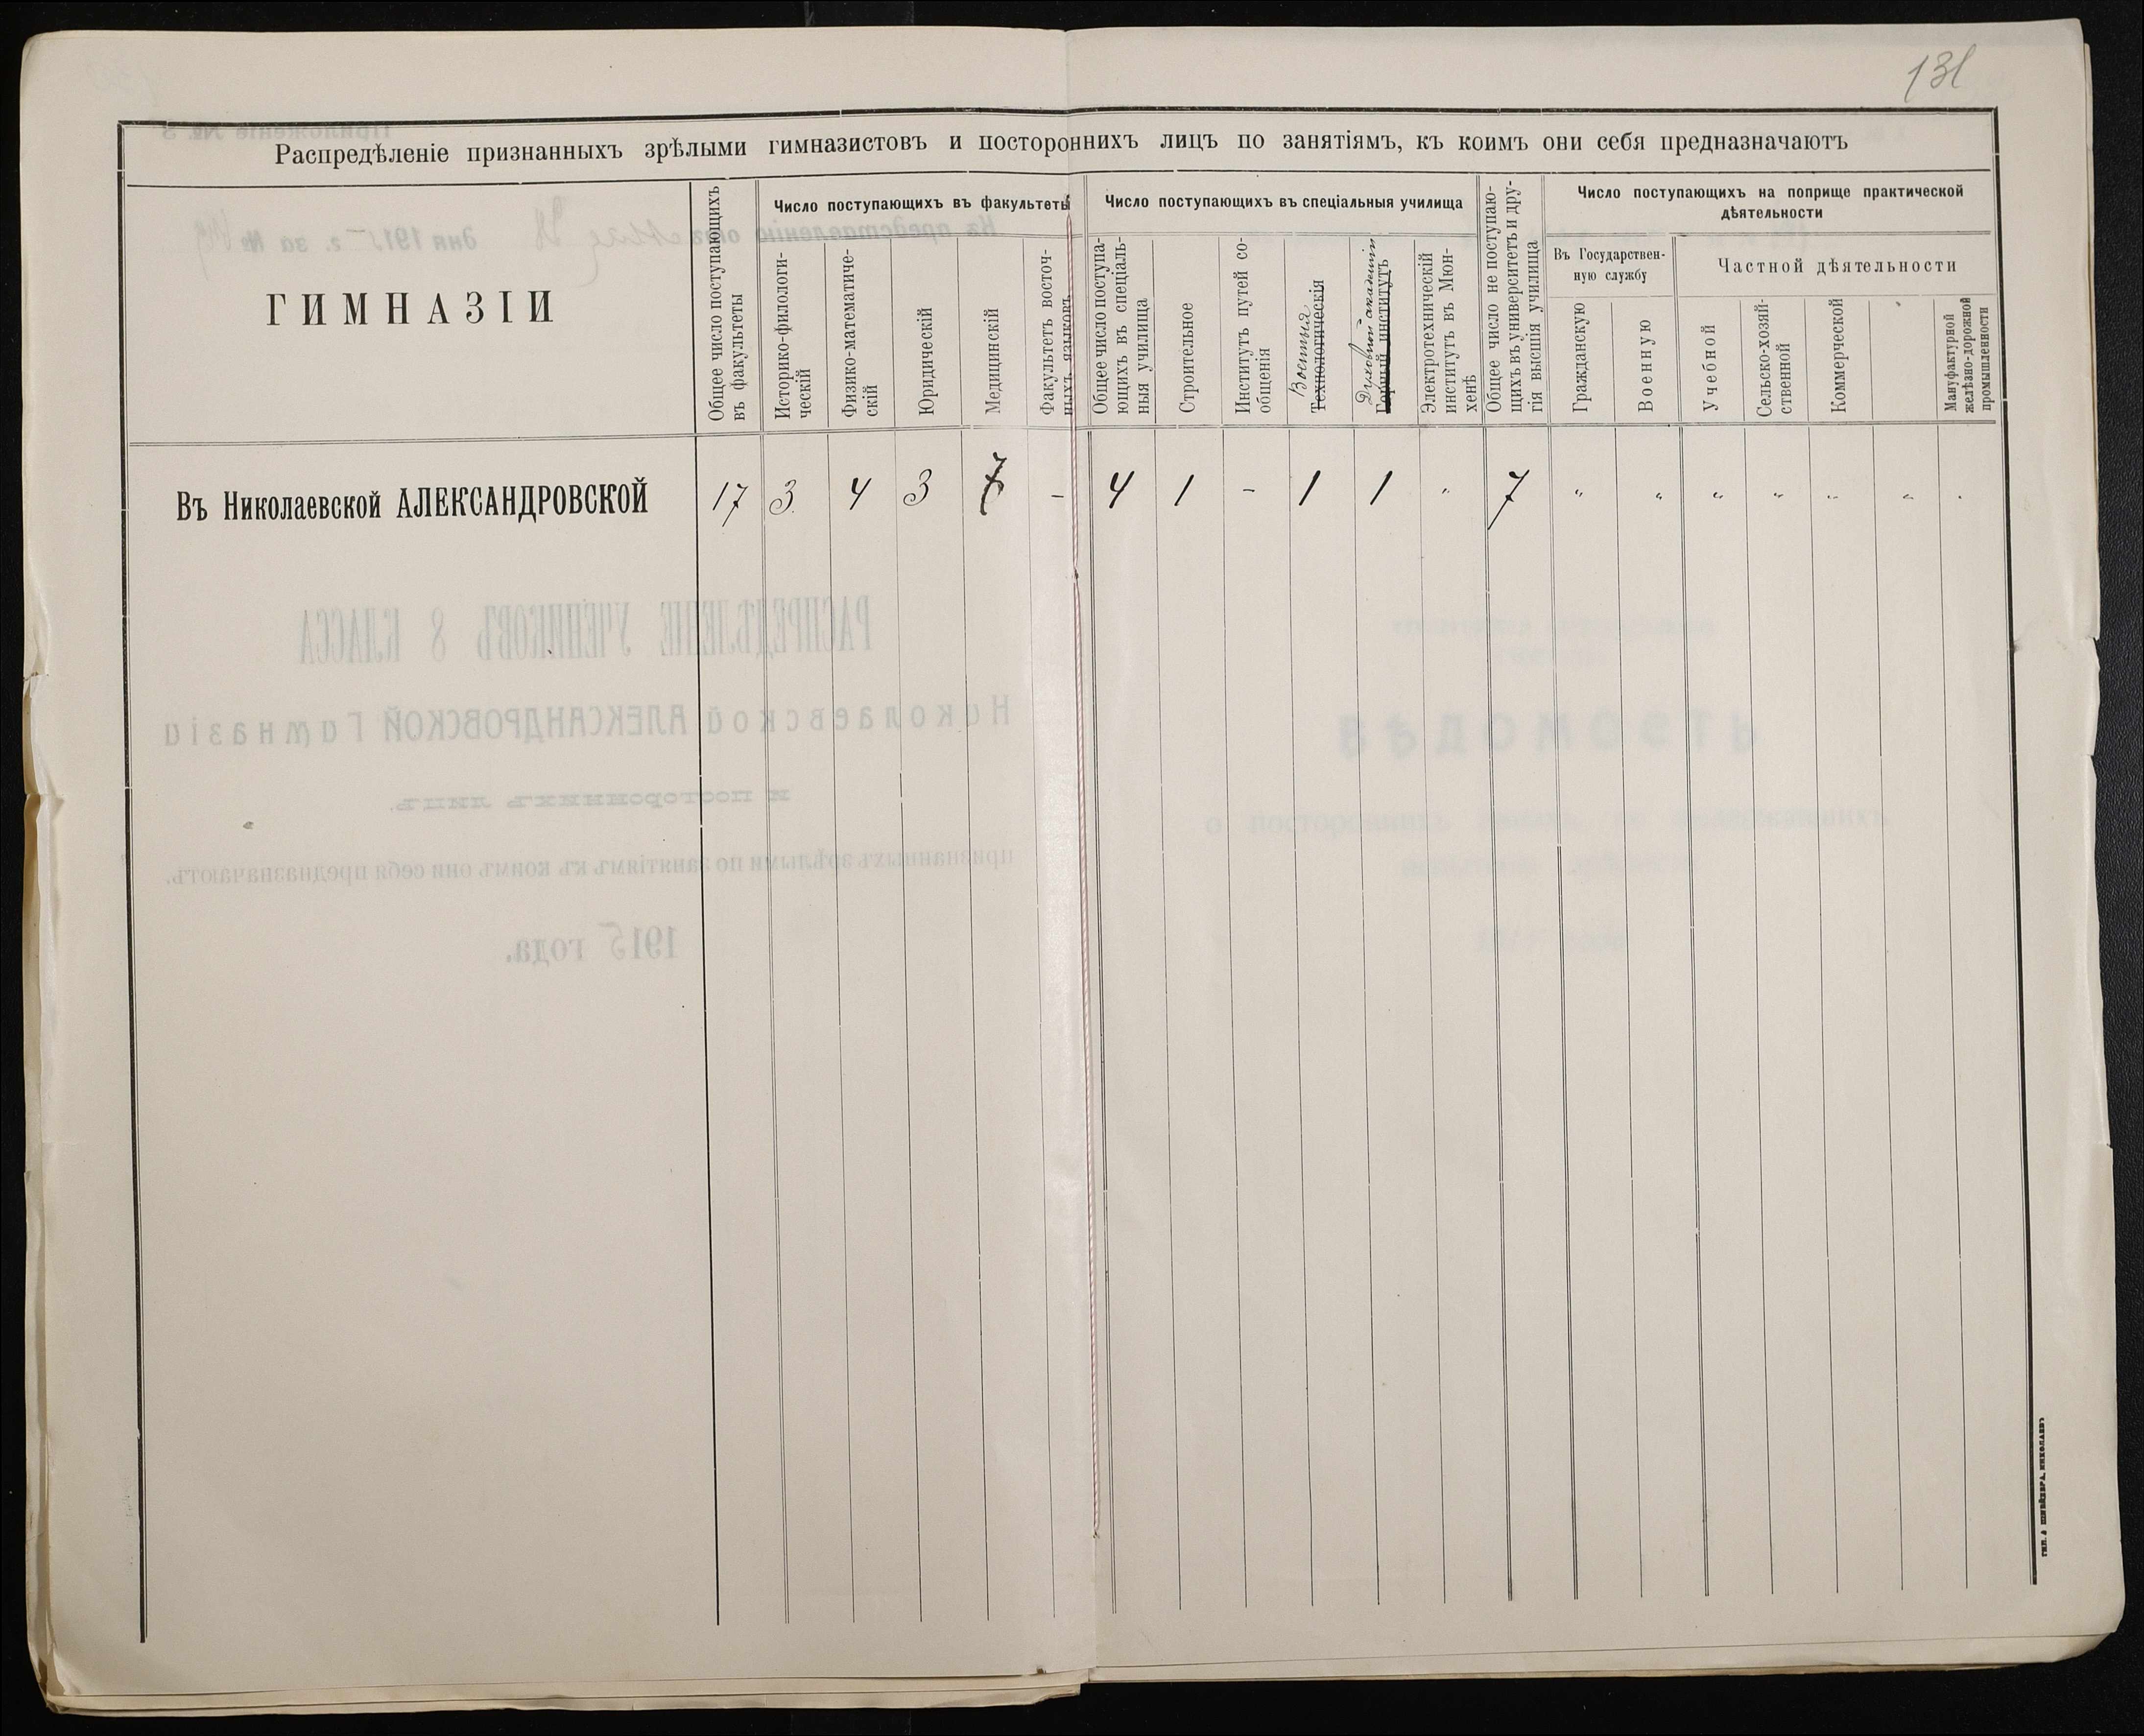 131
Распредѣленіе признанныхъ зрѣлыми гимназистовъ и постороннихъ лицъ по занятіямъ, къ коимъ они себя предназначаютъ
ГИМНАЗІИ
Общее число поступающихъ
въ факультеты
Число поступающихъ въ факультеты
Историко-филологи-
ческій
Физико-математиче-
скій
Юридическій
Медицинскій
Факультетъ восточ-
ныхъ языковъ
Число поступающихъ въ спеціальныя училища
Общее число поступа-
ющихъ въ спеціаль-
ныя училища
Строительное
Институтъ путей со-
общенія
Военныя
Технологическія
Духовной академіи
Горный институтъ
Электротехническій
институтъ въ Мюн-
хенѣ
Общее число не поступаю-
щихъ въ университетъ и дру-
гія высшія училища
Число поступающихъ на поприще практической
дѣятельности
Въ Государствен-
ную службу
Гражданскую
Военную
Частной дѣятельности
Учебной
Сельско-хозяй-
ственной
Коммерческой
Мануфактурной
желѣзно-дорожной
промышленности
Въ Николаевской АЛЕКСАНДРОВСКОЙ 17 3 4 3 7 – 4 1 – 1 1 " 7 " " " " " " "